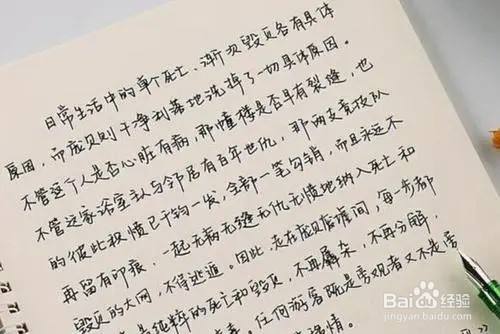 日常生活中的单个死亡、渐次毁灭各有具体
原因，而庞贝则干净利落地洗掉了一切具体原因。
不管这个人是否心脏有病，那幢楼是否早有裂缝，也
不管这家浴室主与邻居有百年世仇，那两支竞技队
的彼此积愤已千钧一发，全部一笔勾销，而且永远不
再留有印痕，一起无病无缝无仇无愤地纳入死亡和
毁灭的大网，不得逃遁。因此，走在庞贝废墟间，每一步都
是纯粹的死亡和毁灭，不再羼杂，不再分解，
任何游客既是旁观者又不是旁
情。
Bai 百度 经验
jingyan.baidu.com